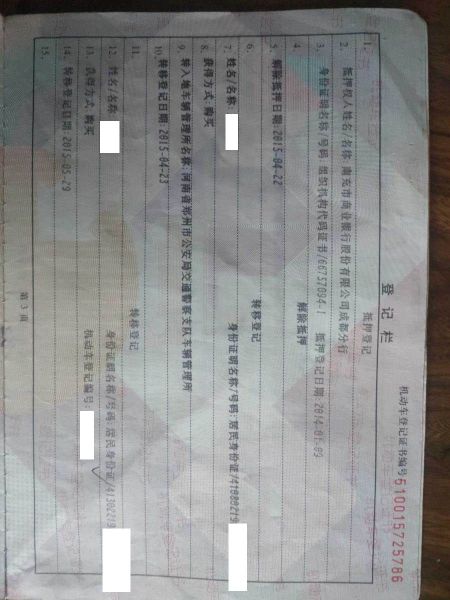 机动车登记证书编号510015725786
登记栏
1. 抵押登记
2. 抵押权人姓名/名称:南充市商业银行股份有限公司成都分行
3. 身份证明名称/号码:组织机构代码证书/66757094-1 抵押登记日期:2014-01-09
4. 解除抵押
5. 解除抵押日期:2015-04-22
6. 转移登记
7. 姓名/名称: 身份证明名称/号码:居民身份证/41080219
8. 获得方式:购买
9. 转入地车辆管理所名称:河南省郑州市公安局交通警察支队车辆管理所
10. 转移登记日期:2015-04-23
11. 转移登记
12. 姓名/名称: 身份证明名称/号码:居民身份证/41302219
13. 获得方式:购买 机动车登记编号:
14. 转移登记日期:2015-05-29
15.
第3页